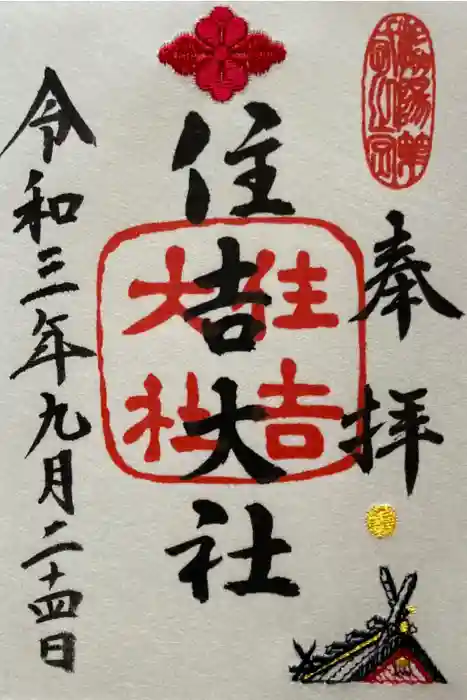 奉拝
住吉大社
住吉大社
令和三年九月二十四日